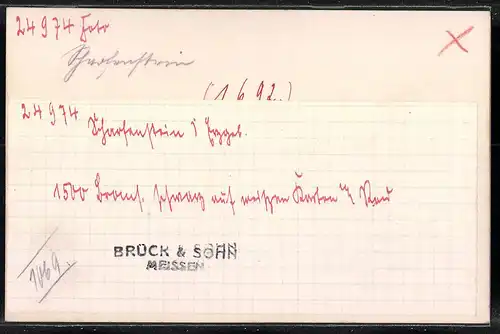 24974 Foto
Scharfenstein
(1692.)
24974
Scharfenstein i/Erzgeb.
1500 Broms. schwarz auf weißen Karton
BRÜCK & SOHN
MEISSEN
1869.